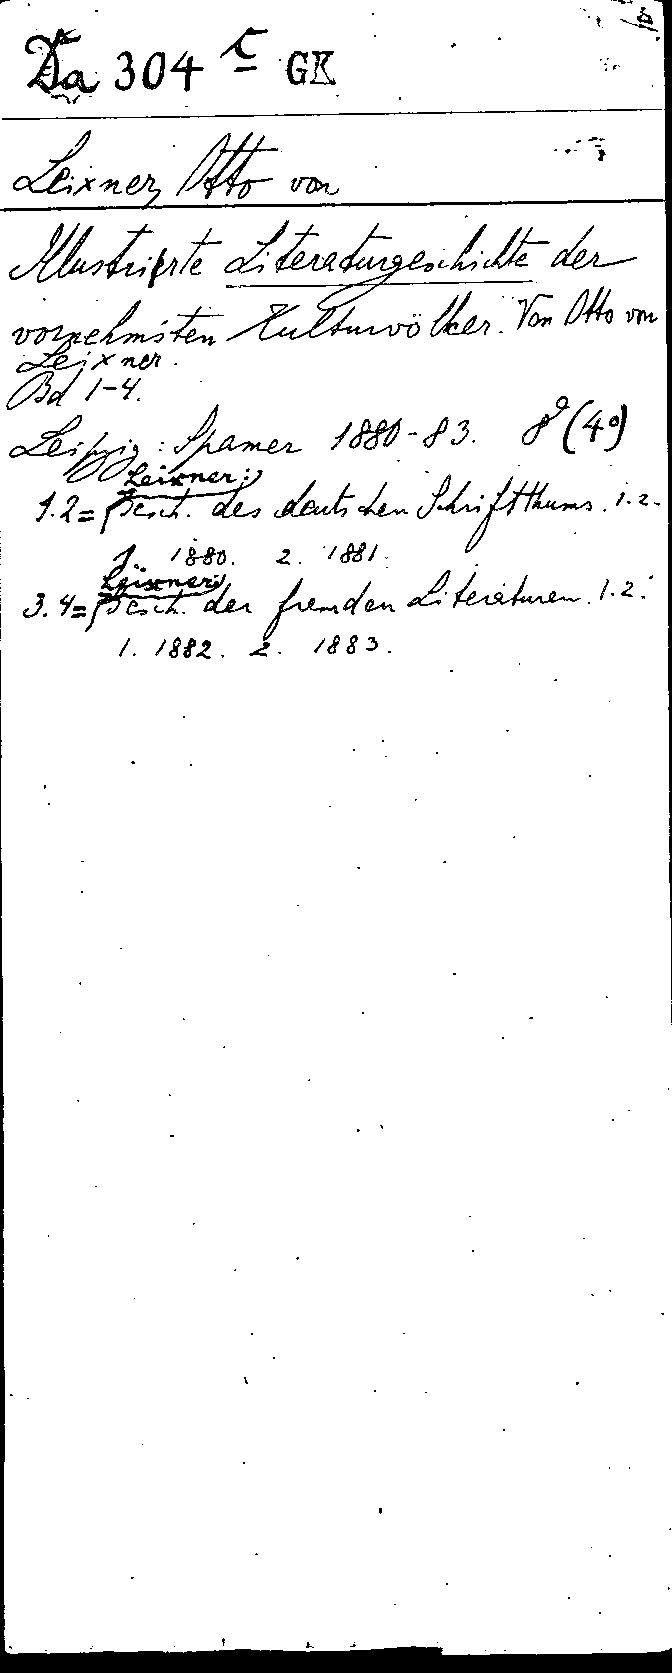 Da 304 c GK
Leixner, Otto von
Illustrierte Literaturgeschichte der
vornehmsten Kulturvölker. Von Otto von
Leixner.
Bd 1-4.
Leipzig: Spamer 1880-83. 8° (4°)
Leixner:
1.2= Gesch. des deutschen Schriftthums. 1.2.
1. 1880. 2. 1881.
Leixner:
3.4= Gesch. der fremden Literaturen. 1.2.
1. 1882. 2. 1883.